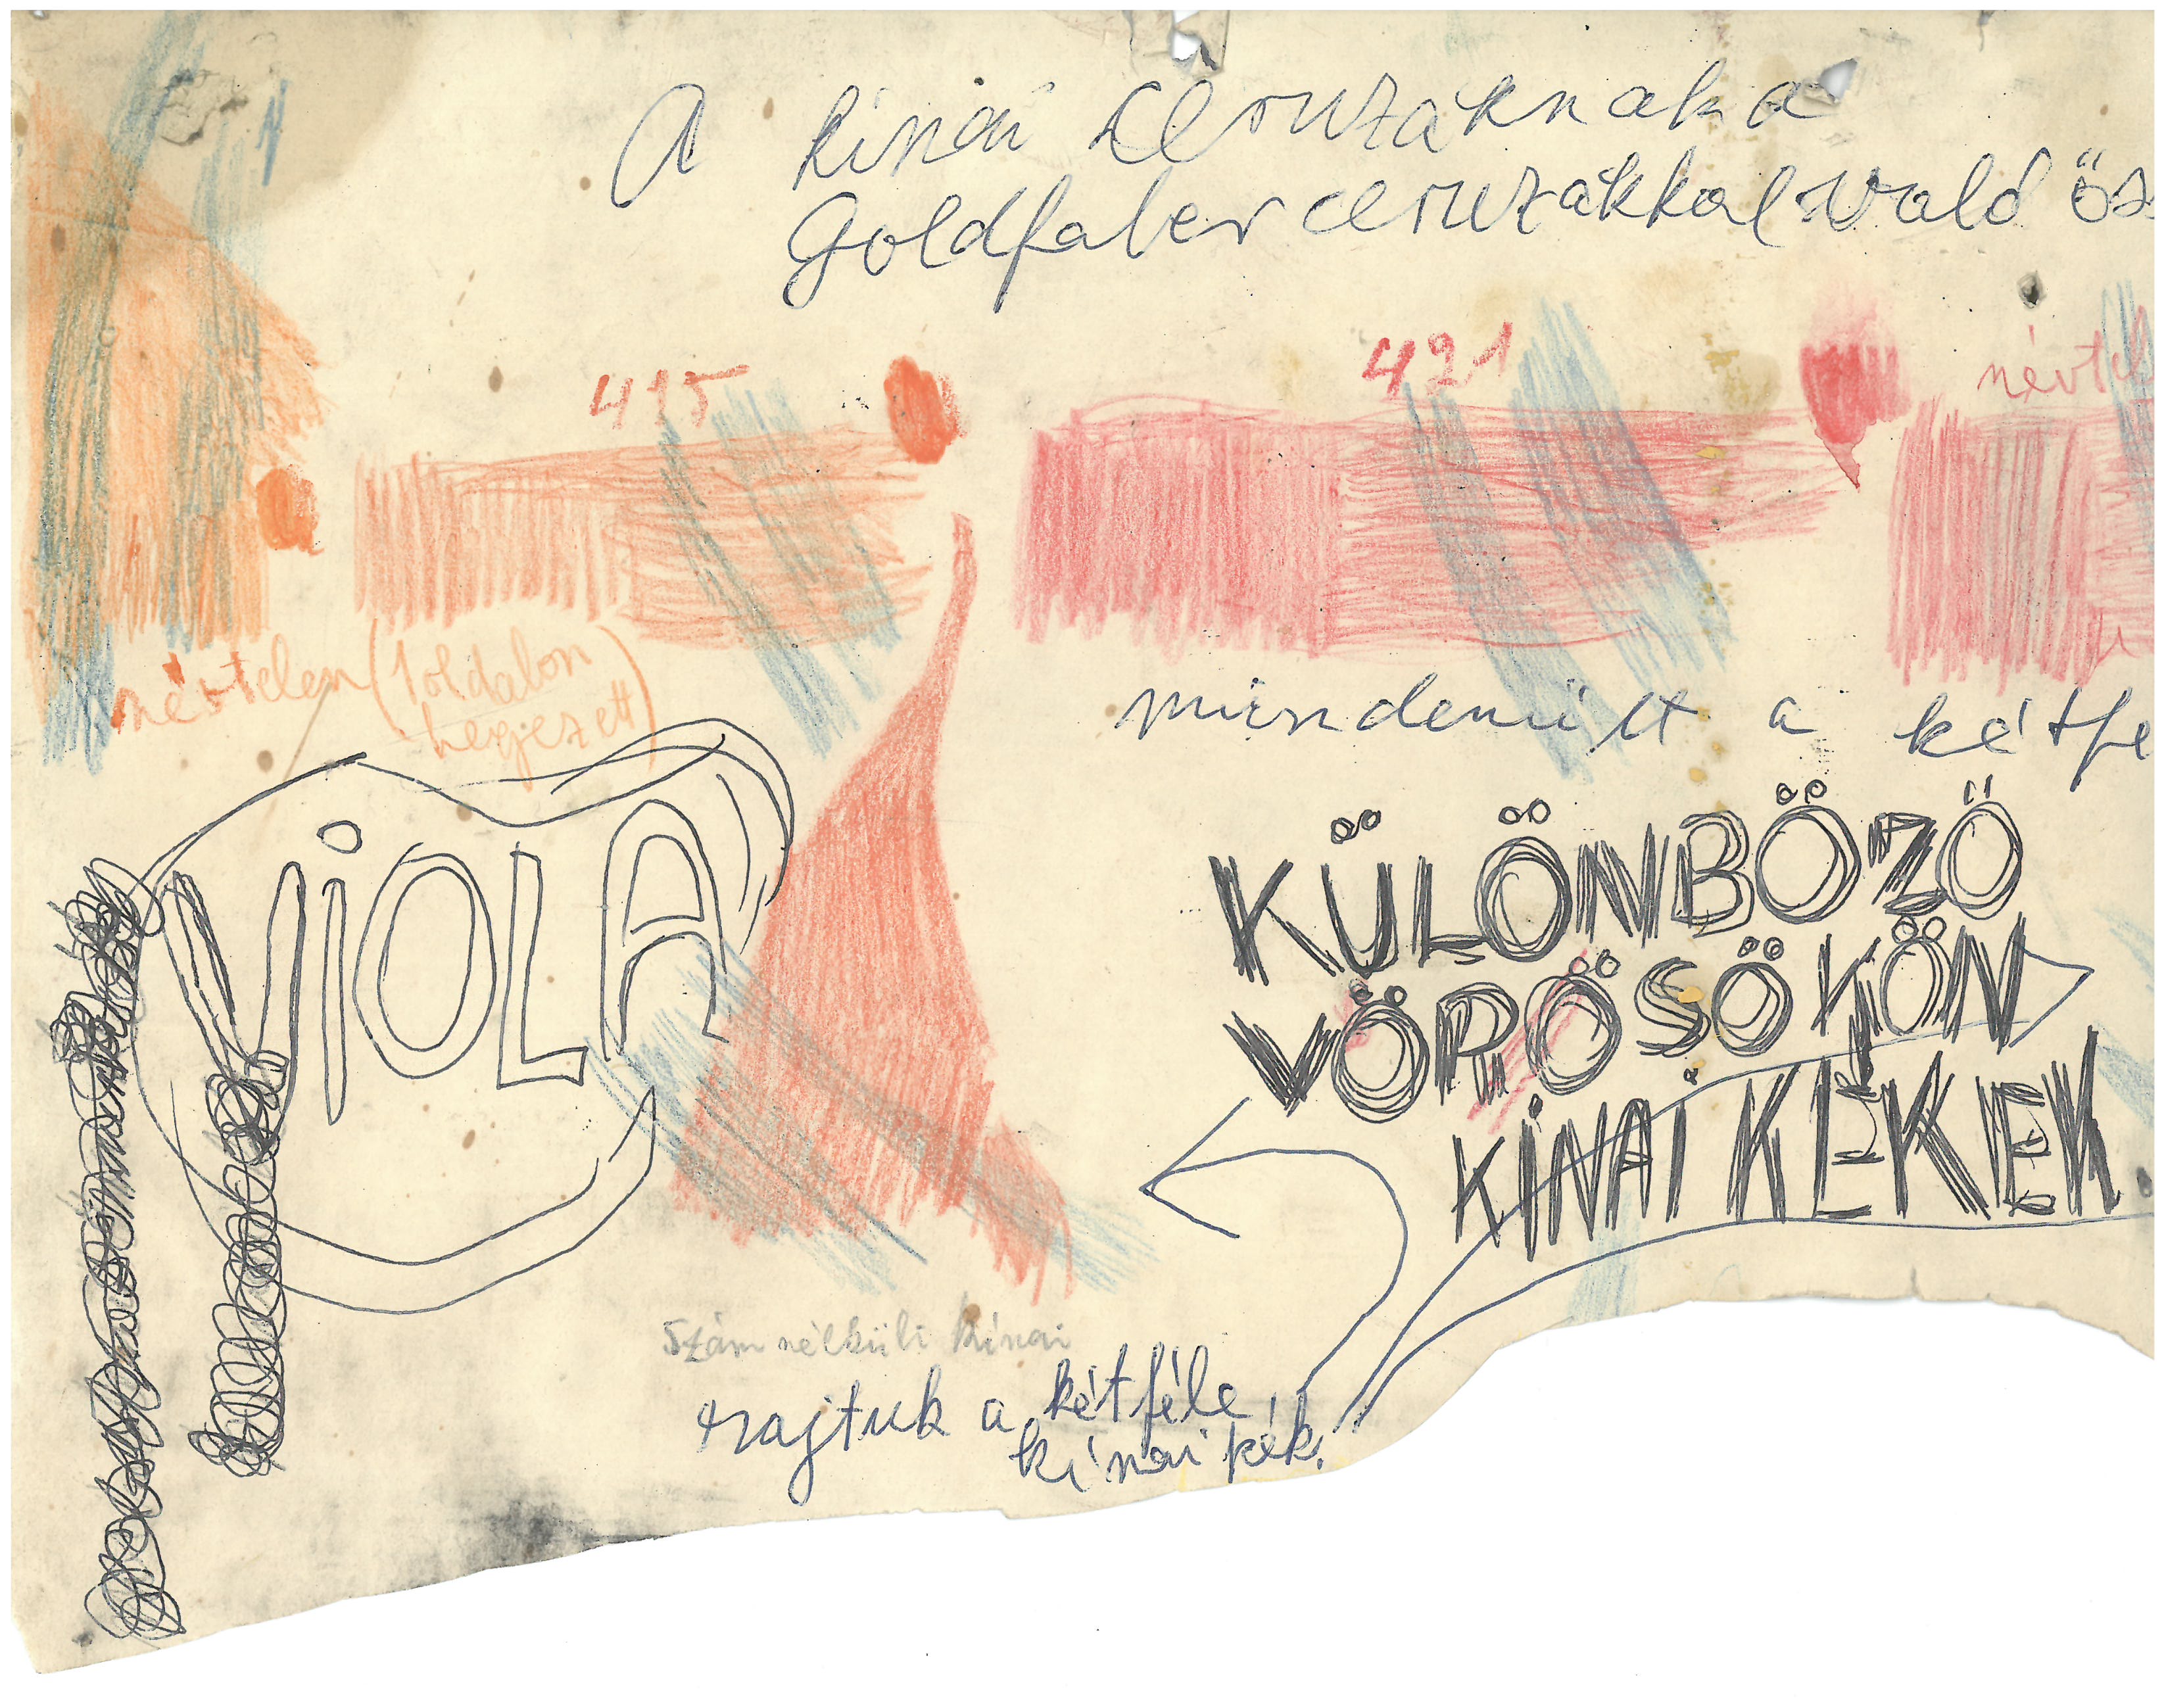 A kinai ceruzáknak a
Goldfaber ceruzákkal való ös
415
421
névtel
névtelen (1 oldalon
hegyezett)
mindenütt a kétfe
VIOLA
KÜLÖNBÖZŐ
VÖRÖSÖKÖN
KÍNAI KÉKEK
Szám nélküli kínai
rajtuk a kétféle
kínai kék.